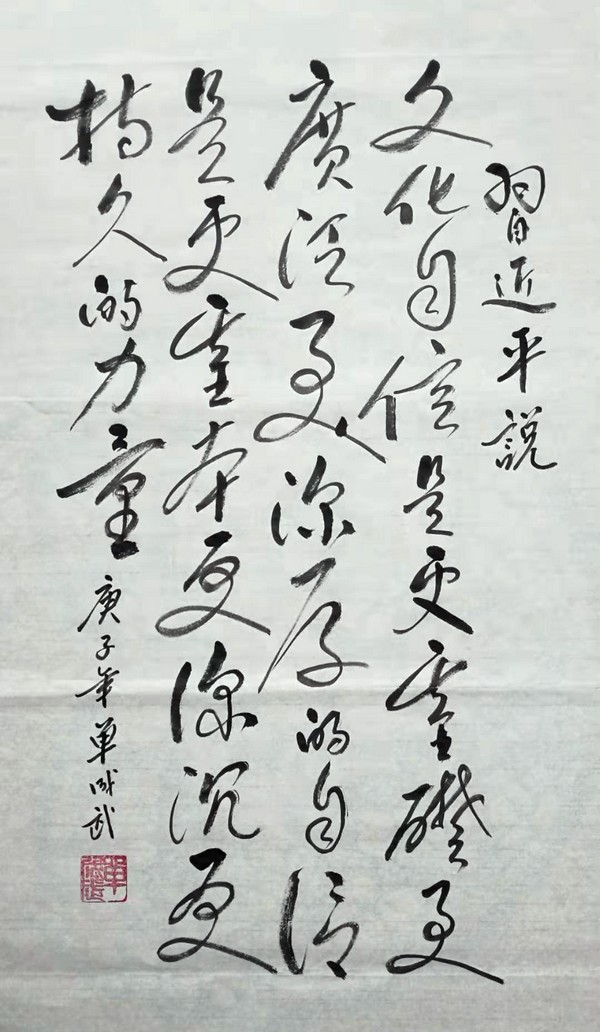 習近平説
文化自信是更基礎更
廣泛更深厚的自信
是更基本更深沉更
持久的力量
庚子年單成武